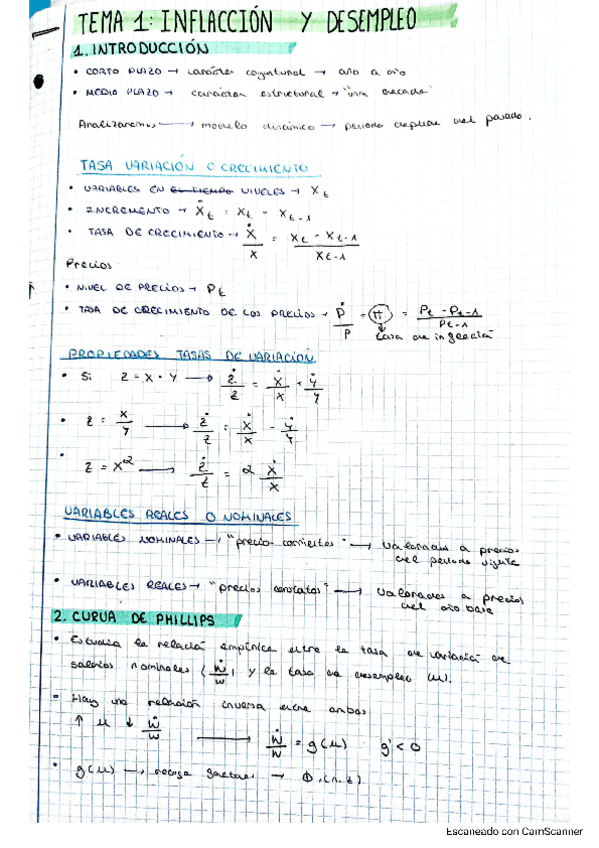 TEMA 1: INFLACCIÓN Y DESEMPLEO
1. INTRODUCCIÓN
• CORTO PLAZO → carácter coyuntural → año a año
• MEDIO PLAZO → carácter estructural → "una década"
Analizaremos → modelo dinámico → periodo depende del pasado.
TASA VARIACIÓN O CRECIMIENTO
• VARIABLES EN NIVELES → Xt
• INCREMENTO → Ẋt = Xt - Xt-1
• TASA DE CRECIMIENTO → Ẋ/X = (Xt - Xt-1)/Xt-1
Precios
• NIVEL DE PRECIOS → Pt
• TASA DE CRECIMIENTO DE LOS PRECIOS → Ṗ/P = π = (Pt - Pt-1)/Pt-1
tasa de inflación
PROPIEDADES TASAS DE VARIACIÓN
• Si Z = X · Y → Ż/Z = Ẋ/X + Ẏ/Y
• Z = X/Y → Ż/Z = Ẋ/X - Ẏ/Y
• Z = X^α → Ż/Z = α Ẋ/X
VARIABLES REALES O NOMINALES
• VARIABLES NOMINALES → "precios corrientes" → Valoradas a precios
del periodo vigente
• VARIABLES REALES → "precios constates" → Valoradas a precios
del año base
2. CURVA DE PHILLIPS
• Estudia la relación empírica entre la tasa de variación de
salarios nominales (Ẇ/W) y la tasa de desempleo (μ).
• Hay una relación inversa entre ambos
↑ μ ↓ Ẇ/W → Ẇ/W = g(μ) g' < 0
• g(μ) → recoge factores →
Escaneado con CamScanner